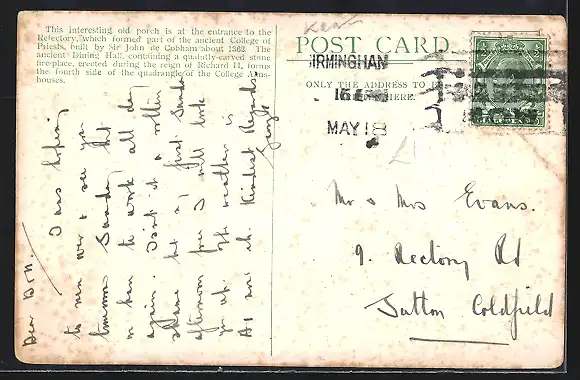 This interesting old porch is at the entrance to the
Refectory, which formed part of the ancient College of
Priests, built by Sir John de Cobham about 1362. The
ancient Dining Hall, containing a quaintly-carved stone
fire-place, erected during the reign of Richard II, forms
the fourth side of the quadrangle of the College Alms-
houses.
Kent
POST CARD.
ONLY THE ADDRESS TO BE
HERE.
BIRMINGHAM
MAY 18
HALFPENNY
£1
Dear Don.
I was hoping
to run over & see you
tomorrow Sunday but
we have to work all day
again. Isn't it a rotten
shame but my first Sunday
afternoon free I will look
you up. The weather is
A1 isn't it. Kindest Regards
George
Mr & Mrs Evans.
9. Rectory Rd
Sutton Coldfield